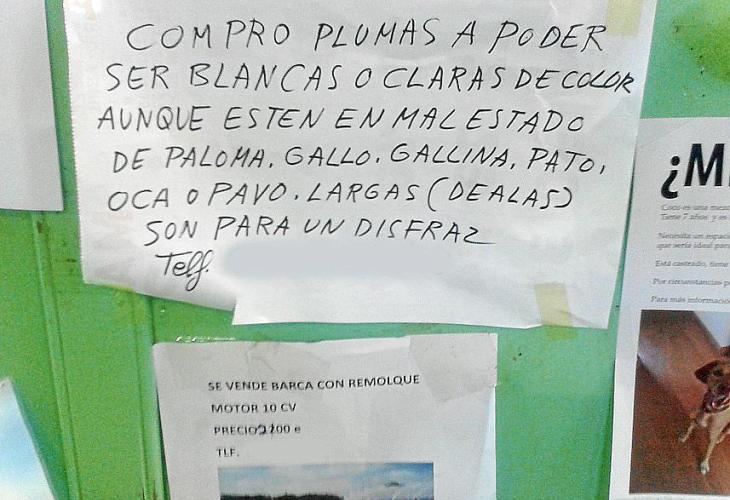 COMPRO PLUMAS A PODER
SER BLANCAS O CLARAS DE COLOR
AUNQUE ESTEN EN MAL ESTADO
DE PALOMA, GALLO, GALLINA, PATO,
OCA O PAVO. LARGAS (DE ALAS)
SON PARA UN DISFRAZ
Telf.
SE VENDE BARCA CON REMOLQUE
MOTOR 10 CV
PRECIO 2200 e
TLF.
¿M
Coco es una
Tiene 7 años y es
Necesita un espaci
que sería ideal par
Está castrado, tiene
Por circunstancias p
Para más informació